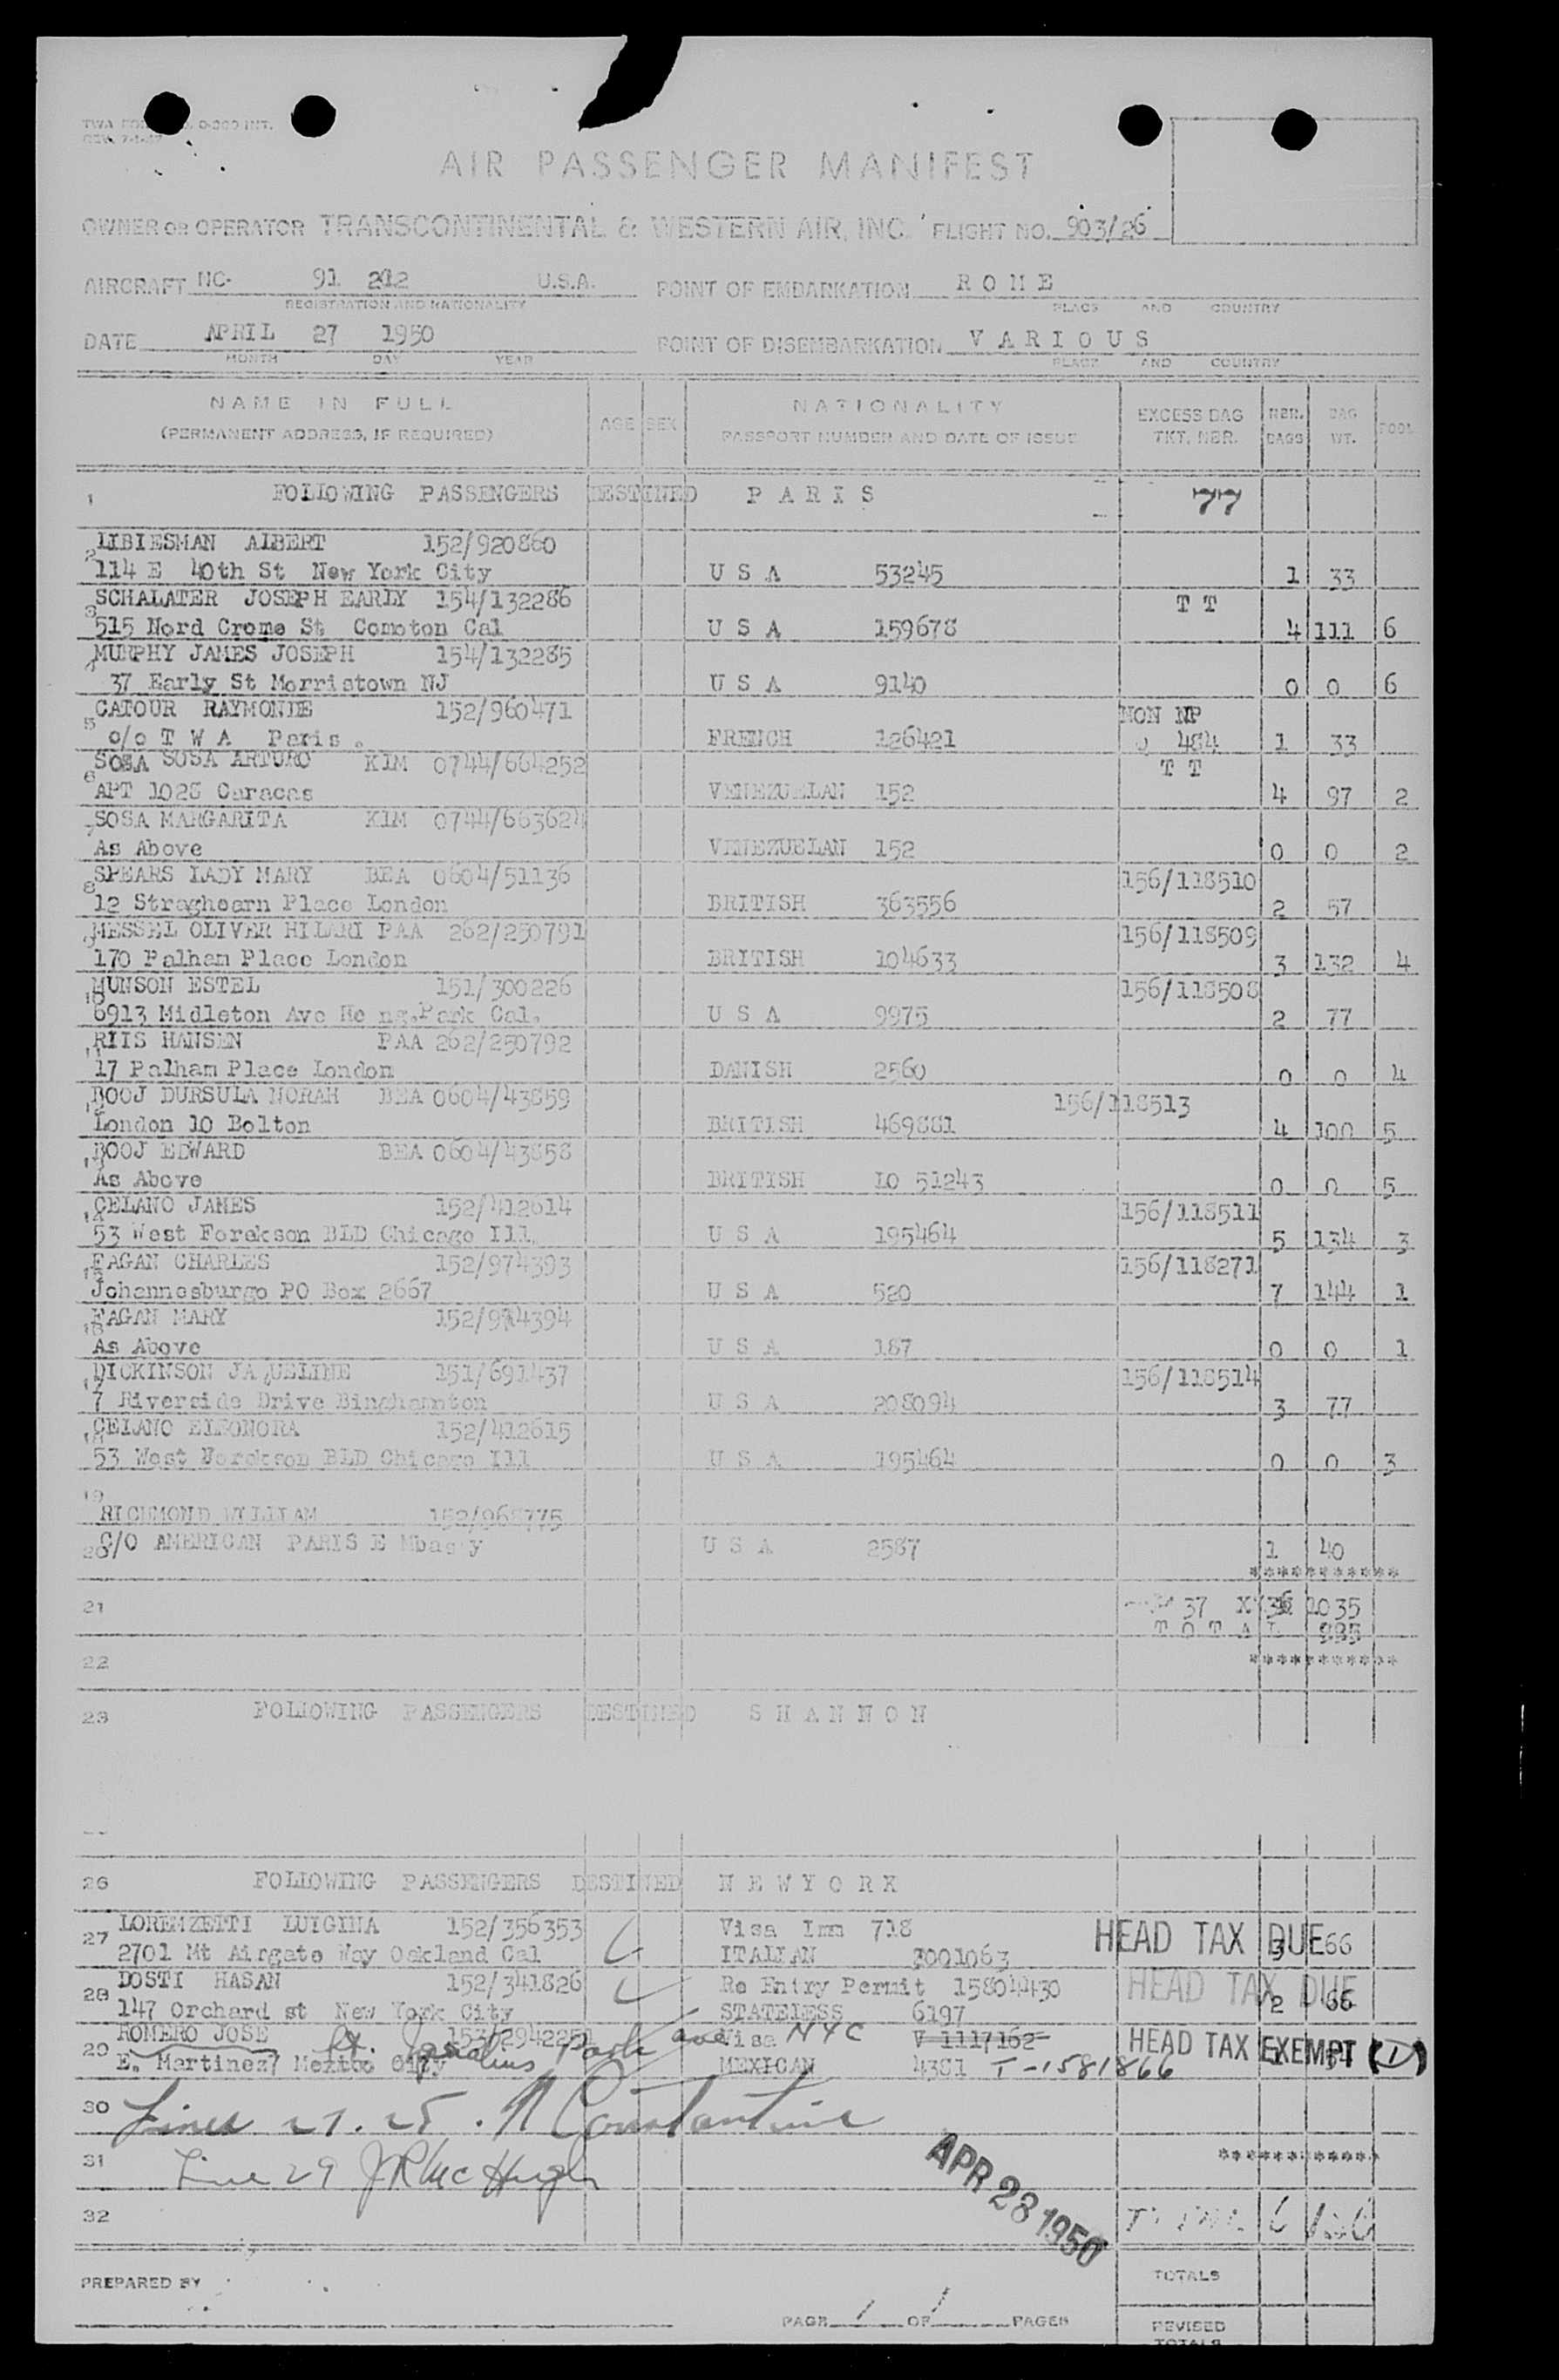 AIR PASSENGER MANIFEST
OWNER OR OPERATOR TRANSCONTINENTAL & WESTERN AIR, INC. FLIGHT NO. 903/26
AIRCRAFT NC- 91 212 U.S.A. POINT OF EMBARKATION R O M E
REGISTRATION AND NATIONALITY PLACE AND COUNTRY
DATE APRIL 27 1950 POINT OF DISEMBARKATION V A R I O U S
MONTH DAY YEAR PLACE AND COUNTRY
NAME IN FULL NATIONALITY
(PERMANENT ADDRESS, IF REQUIRED) AGE SEX PASSPORT NUMBER AND DATE OF ISSUE EXCESS BAG TKT. NBR. NBR. BAGS BAG WT. POOL
1 FOLLOWING PASSENGERS DESTINED P A R I S 77
2 LIBIESMAN ALBERT 152/920860
114 E 40th St New York City U S A 53245 1 33
3 SCHALATER JOSEPH EARLY 154/132286 T T
515 Nord Crome St Comoton Cal U S A 159678 4 111 6
4 MURPHY JAMES JOSEPH 154/132285
37 Early St Morristown NJ U S A 9140 0 0 6
5 CATOUR RAYMONDE 152/960471 NON NP
c/o T W A Paris. FRENCH 126421 484 1 33
6 SOSA SOSA ARTURO KLM 0744/664252 T T
APT 1028 Caracas VENEZUELAN 152 4 97 2
7 SOSA MARGARITA KLM 0744/663624
As Above VENEZUELAN 152 0 0 2
8 SPEARS LADY MARY BEA 0604/51136 156/118510
12 Straghearn Place London BRITISH 363556 2 57
9 MESSEL OLIVER HILARI PAA 262/250791 156/118509
170 Palham Place London BRITISH 104633 3 132 4
10 MUNSON ESTEL 151/300226 156/118508
6913 Midleton Ave Park Cal. U S A 9975 2 77
11 RIIS HANSEN PAA 262/250792
17 Palham Place London DANISH 2560 0 0 4
12 BOOJ DURSULA NORAH BEA 0604/43859 156/118513
London 10 Bolton BRITISH 469881 4 100 5
13 BOOJ EDWARD BEA 0604/43858
As Above BRITISH LO 51243 0 0 5
14 CELANO JAMES 152/412614 156/118511
53 West Forekson BLD Chicago Ill. U S A 195464 5 134 3
15 FAGAN CHARLES 152/974393 156/118271
Johannesburgo PO Box 2667 U S A 520 7 144 1
16 FAGAN MARY 152/974394
As Above U S A 187 0 0 1
17 DICKINSON JAQUELINE 151/691437 156/118514
7 Riverside Drive Binghamnton U S A 208094 3 77
18 CELANO ELEONORA 152/412615
53 West Forekson BLD Chicago Ill U S A 195464 0 0 3
19
RICHMOND WILLIAM 152/968775
20 C/O AMERICAN PARIS E Mbassy U S A 2587 1 40
***********
21 37 1035
T O T A L
22 ***********
23 FOLLOWING PASSENGERS DESTINED S H A N N O N
26 FOLLOWING PASSENGERS DESTINED N E W Y O R K
27 LORENZETTI LUIGINA 152/356353 Visa Imm 718 HEAD TAX DUE 3 66
2701 Mt Airgate Way Oakland Cal ITALIAN 2001063
28 DOSTI HASAN 152/341826 Re Entry Permit 158044430 HEAD TAX DUE 2 66
147 Orchard st New York City STATELESS 6197
29 ROMERO JOSE Visa NYC V 1117162 HEAD TAX EXEMPT (1)
E. Martinez7 Mexico City MEXICAN 4381 T-1581866
30 Lines 27.28. N Constantine
31 Line 29 JR McHugh ************
APR 28 1950
32 6
PREPARED BY TOTALS
PAGE 1 OF 1 PAGES REVISED TOTALS